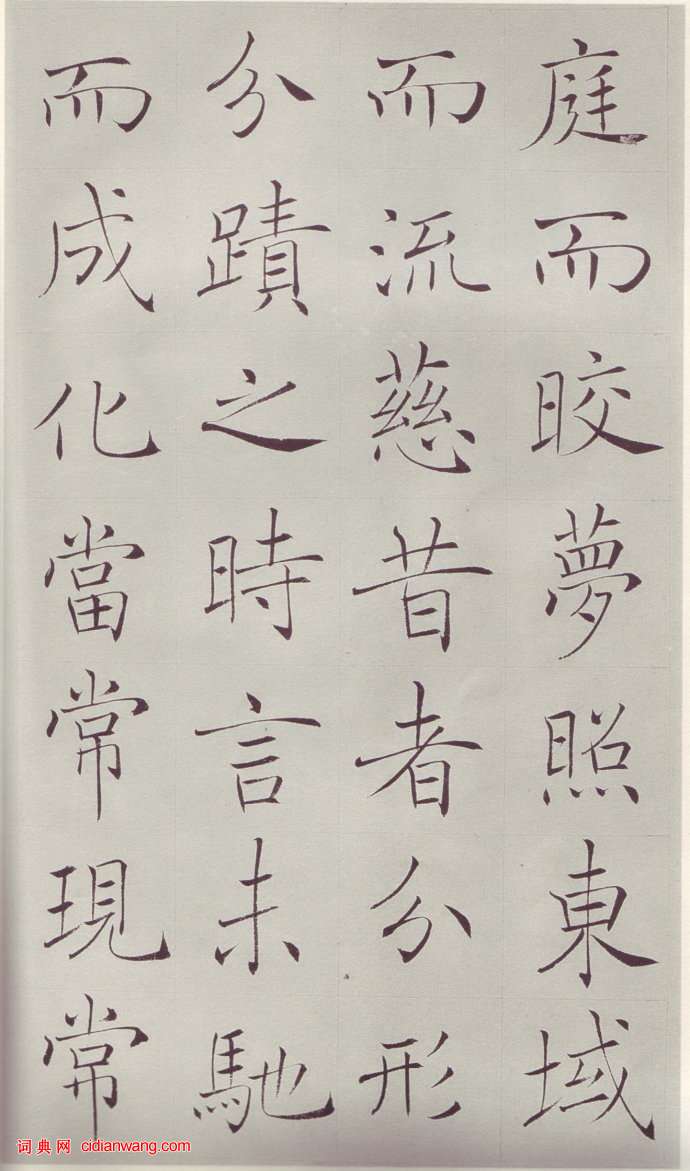 庭而晈夢照東域
而流慈昔者分形
分蹟之時言未馳
而成化當常現常
词典网 cidianwang.com